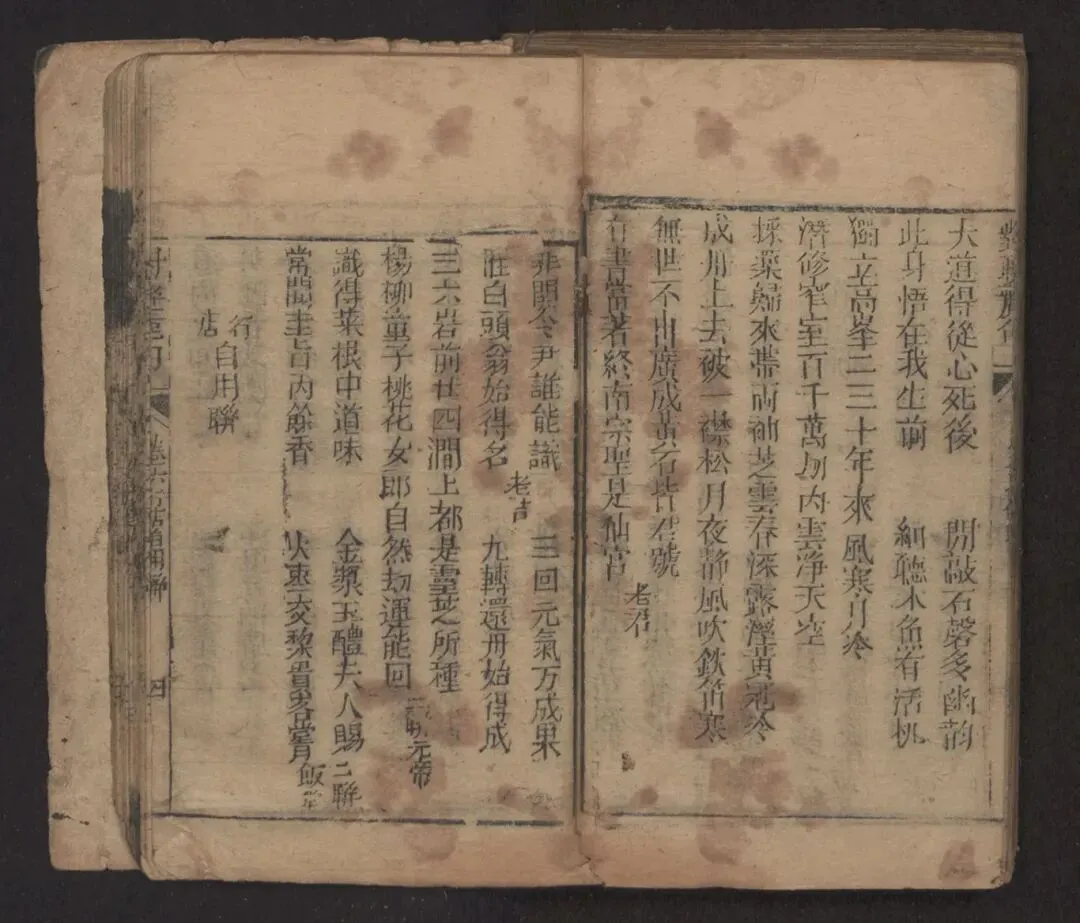 大道得從心死後 閒敲石磬多幽韵
此身悟在我生前 細聽木魚有活桃
獨立高峯二三十年來風寒月冷
潛修窄室百千萬刼內雲淨天空
採藥歸來帶兩袖芝雲春深露溼黃冠冷
成丹上去破一襟松月夜靜風吹鉄笛寒
無世不出廣成黃石皆君號
有書嘗著終南宗聖是仙宮 老君
非關令尹誰能識 三回元氣万成果
旺白頭翁始得名 九轉還丹始得成
老君
三六岩前廿四澗上都是靈芝所種
楊柳童子桃花女郎自然刼運能回 元帝
識得菜根中道味 金漿玉醴夫人賜 二聯
常聞圭旨內餘香 火棗交梨貴客嘗 飯
行店自用聯
卷六 行店自用聯
四